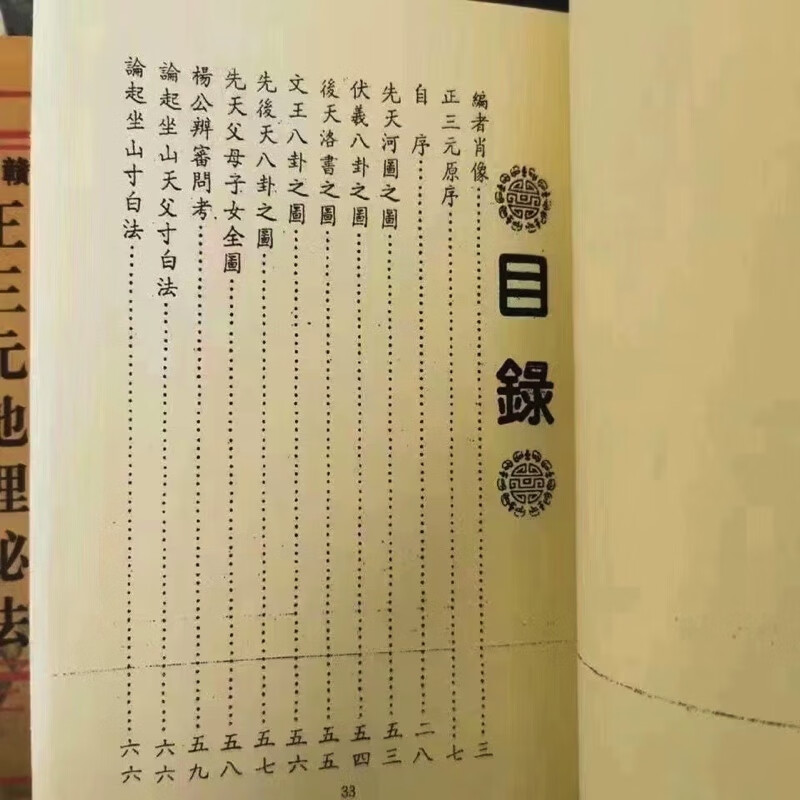 目錄
編者肖像……三
正三元原序……七
自序……二八
先天河圖之圖……五三
伏義八卦之圖……五四
後天洛書之圖……五五
文王八卦之圖……五六
先後天八卦之圖……五七
先天父母子女全圖……五八
楊公辨審問考……五九
論起坐山天父寸白法……六六
論起坐山寸白法……六六
33
贛
正三元地理秘法